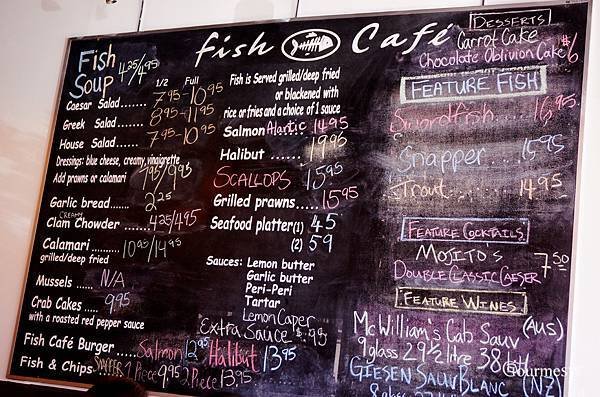 fish Café
Fish Soup 4.25/4.95
1/2 Full
Caesar Salad....... 7.95 - 10.95
Greek Salad....... 8.95 - 11.95
House Salad....... 7.95 - 10.95
Dressings: blue cheese, creamy, vinaigrette
Add prawns or calamari 7.95/9.95
Garlic bread....... 2.25
CREAMY
Clam Chowder ....... 4.25/4.95
Calamari .......... 10.95/14.95
grilled/deep fried
Mussels ...... N/A
Crab Cakes ..... 9.95
with a roasted red pepper sauce
Fish Café Burger .....Salmon 12.95 Halibut 13.95
Fish & Chips ....SNAPPER 1 Piece 9.95 2 Piece 13.95
Fish is Served grilled/deep fried
or blackened with
rice or fries and a choice of 1 sauce
Salmon Atlantic 14.95
Halibut ...... 19.95
SCALLOPS 15.95
Grilled prawns..... 15.95
Seafood platter (1) 45
(2) 59
Sauces: Lemon butter
Garlic butter
Peri-Peri
Tartar
Lemon Caper
Extra Sauce
DESSERTS
Carrot Cake
Chocolate Oblivion Cake $6
FEATURE FISH
Swordfish..... 16.95
Snapper 15.95
Trout....... 14.95
FEATURE COCKTAILS
MOJITO'S
DOUBLE CLASSIC CAESER 7.50
FEATURE WINES
McWilliam's Cab Sauv (AUS)
9 glass 29 1/2 litre 38 btl
GIESEN SAUV BLANC (NZ)